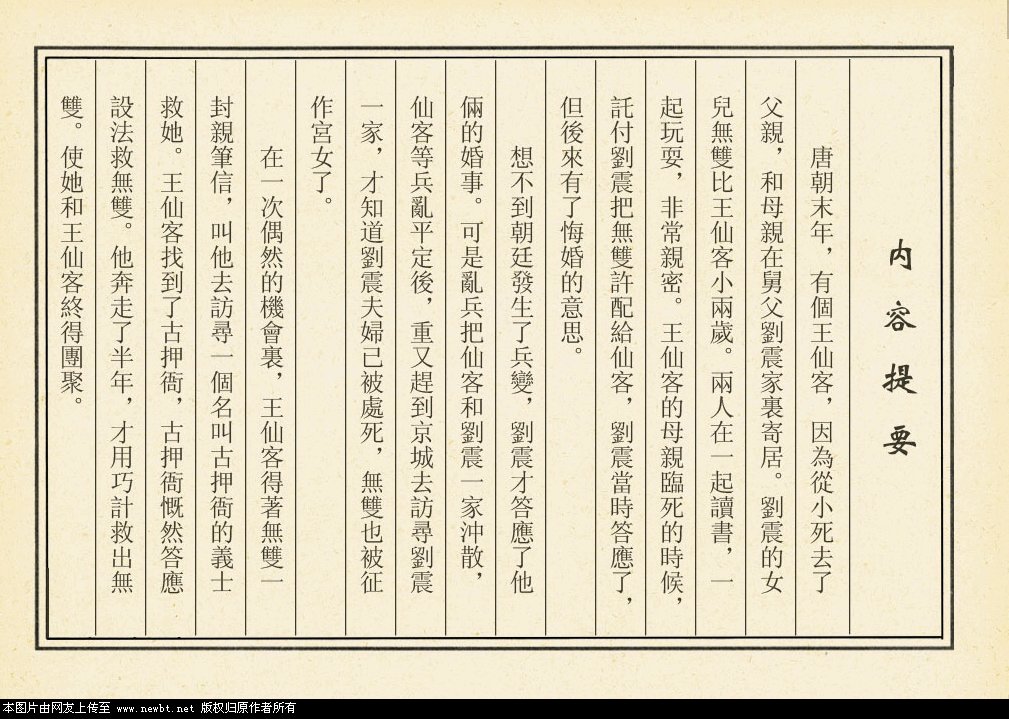 內容提要
唐朝末年，有個王仙客，因為從小死去了
父親，和母親在舅父劉震家裏寄居。劉震的女
兒無雙比王仙客小兩歲。兩人在一起讀書，一
起玩耍，非常親密。王仙客的母親臨死的時候，
託付劉震把無雙許配給仙客，劉震當時答應了，
但後來有了悔婚的意思。
想不到朝廷發生了兵變，劉震才答應了他
倆的婚事。可是亂兵把仙客和劉震一家沖散，
仙客等兵亂平定後，重又趕到京城去訪尋劉震
一家，才知道劉震夫婦已被處死，無雙也被征
作宮女了。
在一次偶然的機會裏，王仙客得著無雙一
封親筆信，叫他去訪尋一個名叫古押衙的義士
救她。王仙客找到了古押衙，古押衙慨然答應
設法救無雙。他奔走了半年，才用巧計救出無
雙。使她和王仙客終得團聚。
本图片由网友上传至 www.newbt.net 版权归原作者所有